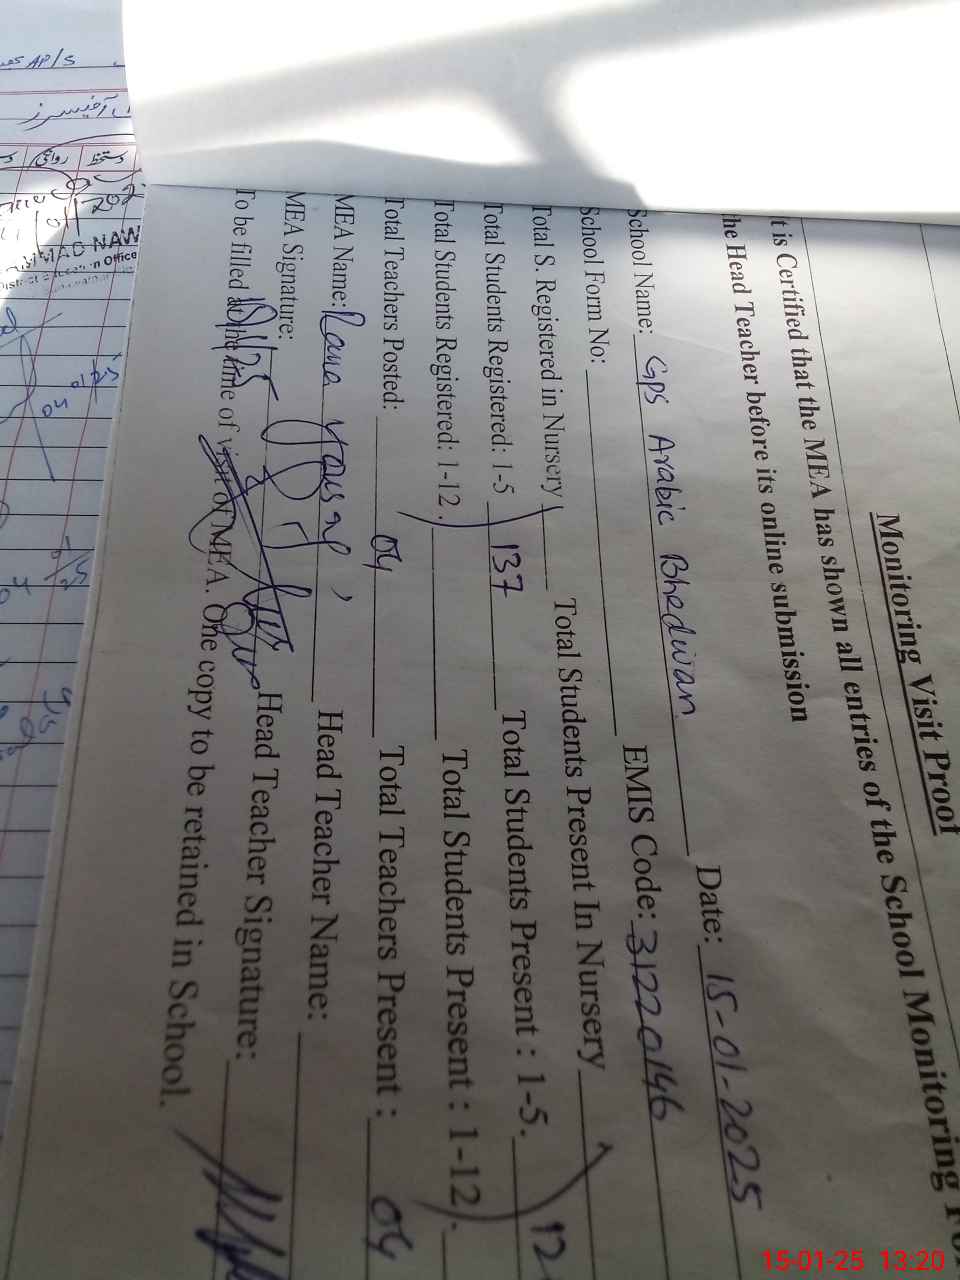 Monitoring Visit Proof
t is Certified that the MEA has shown all entries of the School Monitoring For
he Head Teacher before its online submission
School Name: GPS Arabic Bhediwan Date: 15-01-2025
School Form No: EMIS Code: 31220146
Total S. Registered in Nursery Total Students Present In Nursery
Total Students Registered: 1-5 137 Total Students Present : 1-5. 12
Total Students Registered: 1-12. Total Students Present : 1-12.
Total Teachers Posted: 04 Total Teachers Present : 04
MEA Name: Rana Yousaf, Head Teacher Name:
MEA Signature: Head Teacher Signature:
To be filled at the time of visit of MEA. One copy to be retained in School.
AP/S
آفیسرز
دستخط روانگی
MAD NAW
n Office
15-01-25 13:20